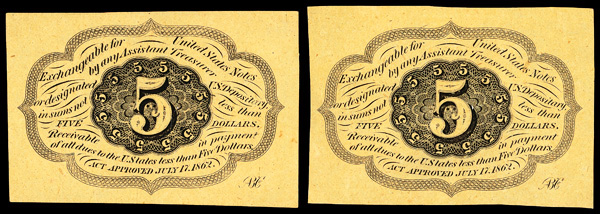 Exchangeable for United States Notes
by any Assistant Treasurer
or designated U.S. Depositary
in sums not less than
FIVE DOLLARS.
Receivable in payment
of all dues to the U. States less than Five Dollars.
ACT APPROVED JULY 17, 1862.
5
5 5 5 5 5 5 5 5 5 5
Exchangeable for United States Notes
by any Assistant Treasurer
or designated U.S. Depositary
in sums not less than
FIVE DOLLARS.
Receivable in payment
of all dues to the U. States less than Five Dollars.
ACT APPROVED JULY 17, 1862.
5
5 5 5 5 5 5 5 5 5 5